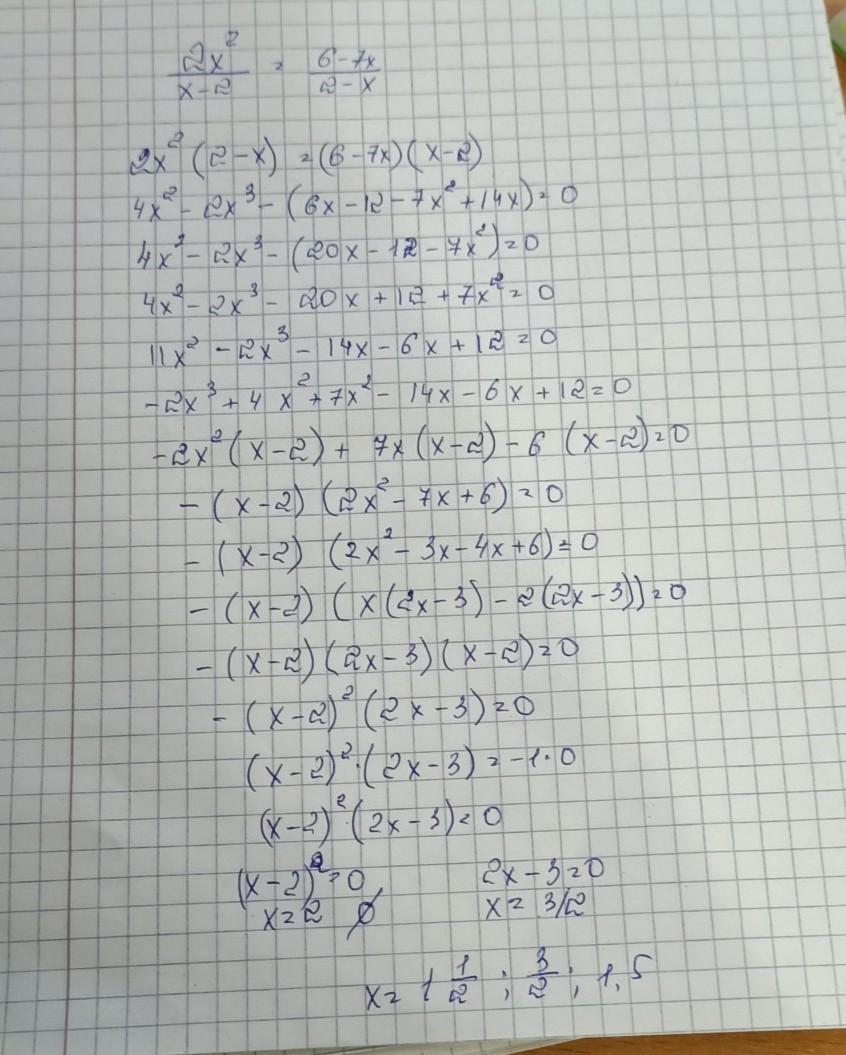 2x²/(x-2) = (6-7x)/(2-x)
2x²(2-x) = (6-7x)(x-2)
4x² - 2x³ - (6x-12-7x²+14x) = 0
4x² - 2x³ - (20x - 12 - 7x²) = 0
4x² - 2x³ - 20x + 12 + 7x² = 0
11x² - 2x³ - 14x - 6x + 12 = 0
-2x³ + 4x² + 7x² - 14x - 6x + 12 = 0
-2x²(x-2) + 7x(x-2) - 6(x-2) = 0
-(x-2)(2x² - 7x + 6) = 0
-(x-2)(2x² - 3x - 4x + 6) = 0
-(x-2)(x(2x-3) - 2(2x-3)) = 0
-(x-2)(2x-3)(x-2) = 0
-(x-2)²(2x-3) = 0
(x-2)²·(2x-3) = -1·0
(x-2)²·(2x-3) = 0
(x-2)² = 0, 2x-3 = 0
x = 2 ∅ x = 3/2
x = 1 1/2 ; 3/2 ; 1,5